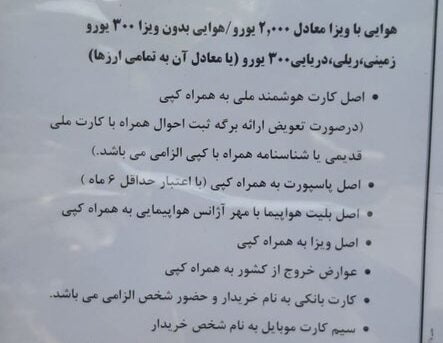 هوایی با ویزا معادل ۲,۰۰۰ یورو/هوایی بدون ویزا ۳۰۰ یورو
زمینی،ریلی،دریایی۳۰۰ یورو (یا معادل آن به تمامی ارزها)
• اصل کارت هوشمند ملی به همراه کپی
(درصورت تعویض ارائه برگه ثبت احوال همراه با کارت ملی
قدیمی یا شناسنامه همراه با کپی الزامی می باشد.)
• اصل پاسپورت به همراه کپی (با اعتبار حداقل ۶ ماه )
• اصل بلیت هواپیما با مهر آژانس هواپیمایی به همراه کپی
• اصل ویزا به همراه کپی
• عوارض خروج از کشور به همراه کپی
• کارت بانکی به نام خریدار و حضور شخص الزامی می باشد.
• سیم کارت موبایل به نام شخص خریدار